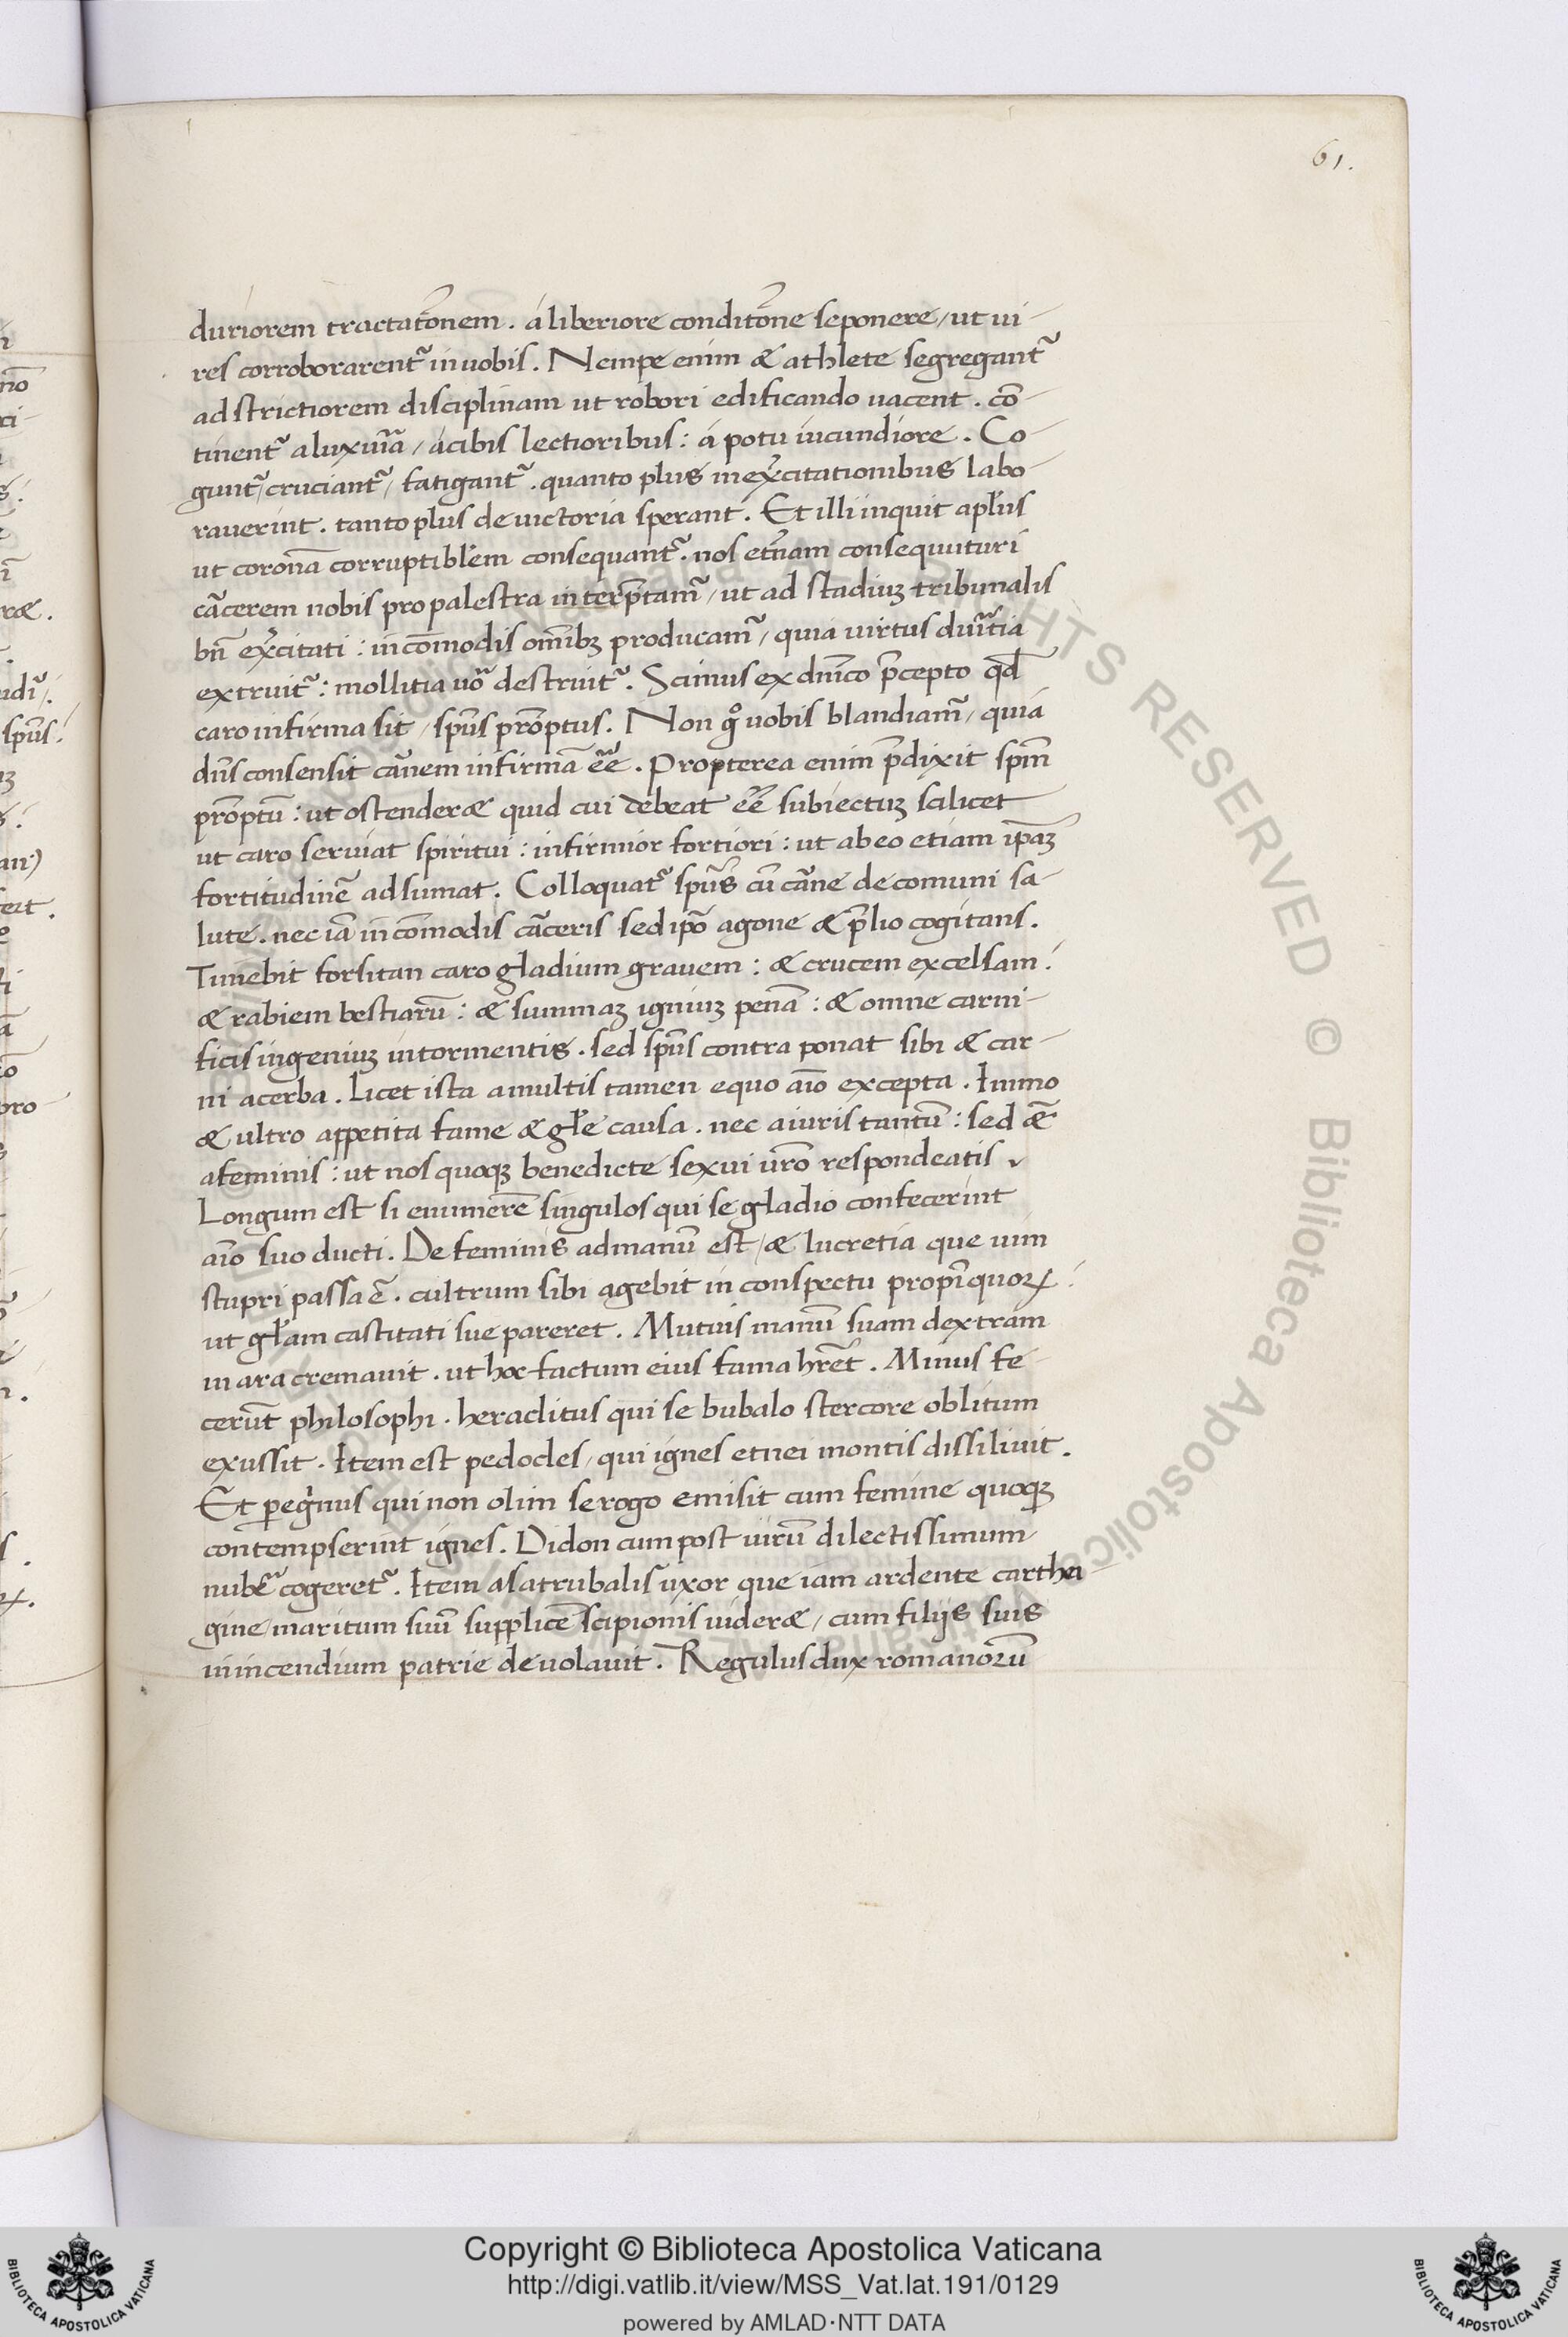 61.
duriorem tractat̃onem. á liberiore condit̃one seponere / ut ui-
res corroborarent᷑ in uobis. Nempe enim & athlete segregant᷑
ad strictiorem disciplinam ut robori edificando uacent. cõ-
tinent᷑ a luxur̃ia / á cibis lectioribus: á potu iucundiore. Co-
gunt᷑ / cruciant᷑ / fatigant᷑. quanto plus in ex̃citationibus labo-
rauerint. tanto plus de uictoria sperant. Et illi inquit apl̃us
ut coronã corruptibl̃em consequant᷑. nos et̃nam consequuturi
cãcerem nobis pro palestra interp̃tam᷑ / ut ad stadiuꝫ tribunalis
bñ ex̃citati: incõmodis om̃ibꝫ producam᷑ / quia uirtus dur̃itia
extruit᷑: mollitia uõ destruit᷑. Scimus ex dñico p̃cepto qd̃
caro infirma sit / sp̃us prõptus. Non gͦ nobis blandiam᷑ / quia
dñs consensit cãnem infirmã eẽ. Propterea enim p̃dixit sp̃m
prõptũ: ut ostender& quid cui debeat eẽ subiectuꝫ scilicet
ut caro seruiat spiritui: infirmior fortiori: ut ab eo etiam ip̃aꝫ
fortitudinẽ adsumat. Colloquat᷑ sp̃us cũ cãne de comuni sa-
lute. nec iã incõmodis cãceris sed ip̃o agone & p̃lio cogitans.
Timebit forsitan caro gladium grauem: & crucem excelsam:
& rabiem bestiarũ: & summaꝫ igniuꝫ penã: & omne carni-
ficis ingeniuꝫ in tormentis. sed sp̃us contra ponat sibi & car-
ni acerba. Licet ista a multis tamen equo aĩo excepta. Immo
& ultro appetita fame & gl̃e causa. nec a iuris tantũ: sed &̃
a feminis: ut nos quoqꝫ benedicte sexui ur̃o respondeatis.
Longum est si enumerẽ singulos qui se gladio confecerint
aĩo suo ducti. De feminis ad manũ est / & lucretia que uim
stupri passa ẽ. cultrum sibi agebit in conspectu propĩquoꝝ:
ut gl̃am castitati sue pareret. Mutius manũ suam dextram
in ara cremauit. ut hoc factum eius fama hr̃et. Minus fe-
cerũt philosophi. heraclitus qui se bubalo stercore oblitum
exussit. Item est pedocles / qui ignes etnei montis dissiliuit.
Et peg̃nus qui non olim se rogo emisit cum femine quoqꝫ
contempserint ignes. Didon cum post uirũ dilectissimum
nub̃e cogeret᷑. Item asatrubalis uxor que iam ardente cartha-
gine / maritum suũ supplicẽ scipionis uider& / cum filijs suis
in incendium patrie deuolauit. Regulus dux romanorũ
Copyright © Biblioteca Apostolica Vaticana
http://digi.vatlib.it/view/MSS_Vat.lat.191/0129
powered by AMLAD·NTT DATA